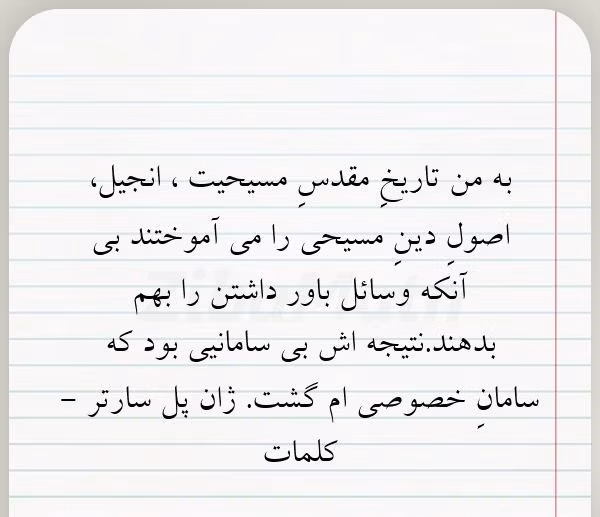 به من تاریخِ مقدسِ مسیحیت ، انجیل،
اصولِ دینِ مسیحی را می آموختند بی
آنکه وسائل باور داشتن را بهم
بدهند.نتیجه اش بی سامانیی بود که
سامانِ خصوصی ام گشت. ژان پل سارتر –
کلمات